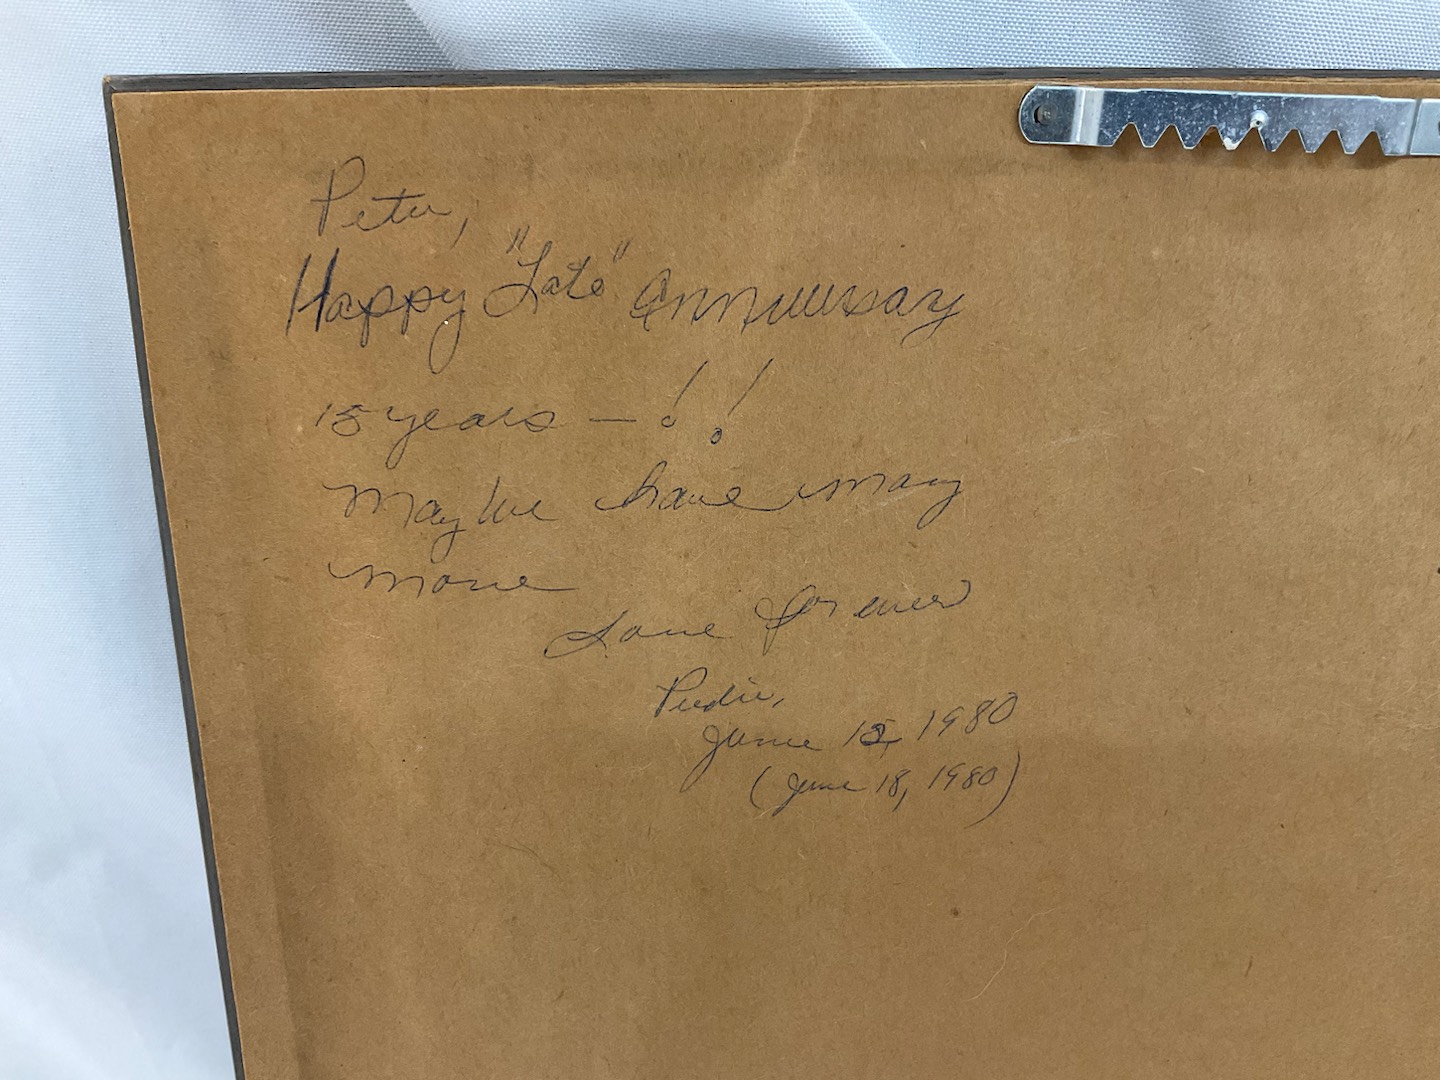 Peter,
Happy "Late" Anniversary
15 years — !!
May we have many
more
Love forever
June 12, 1980
(June 18, 1980)